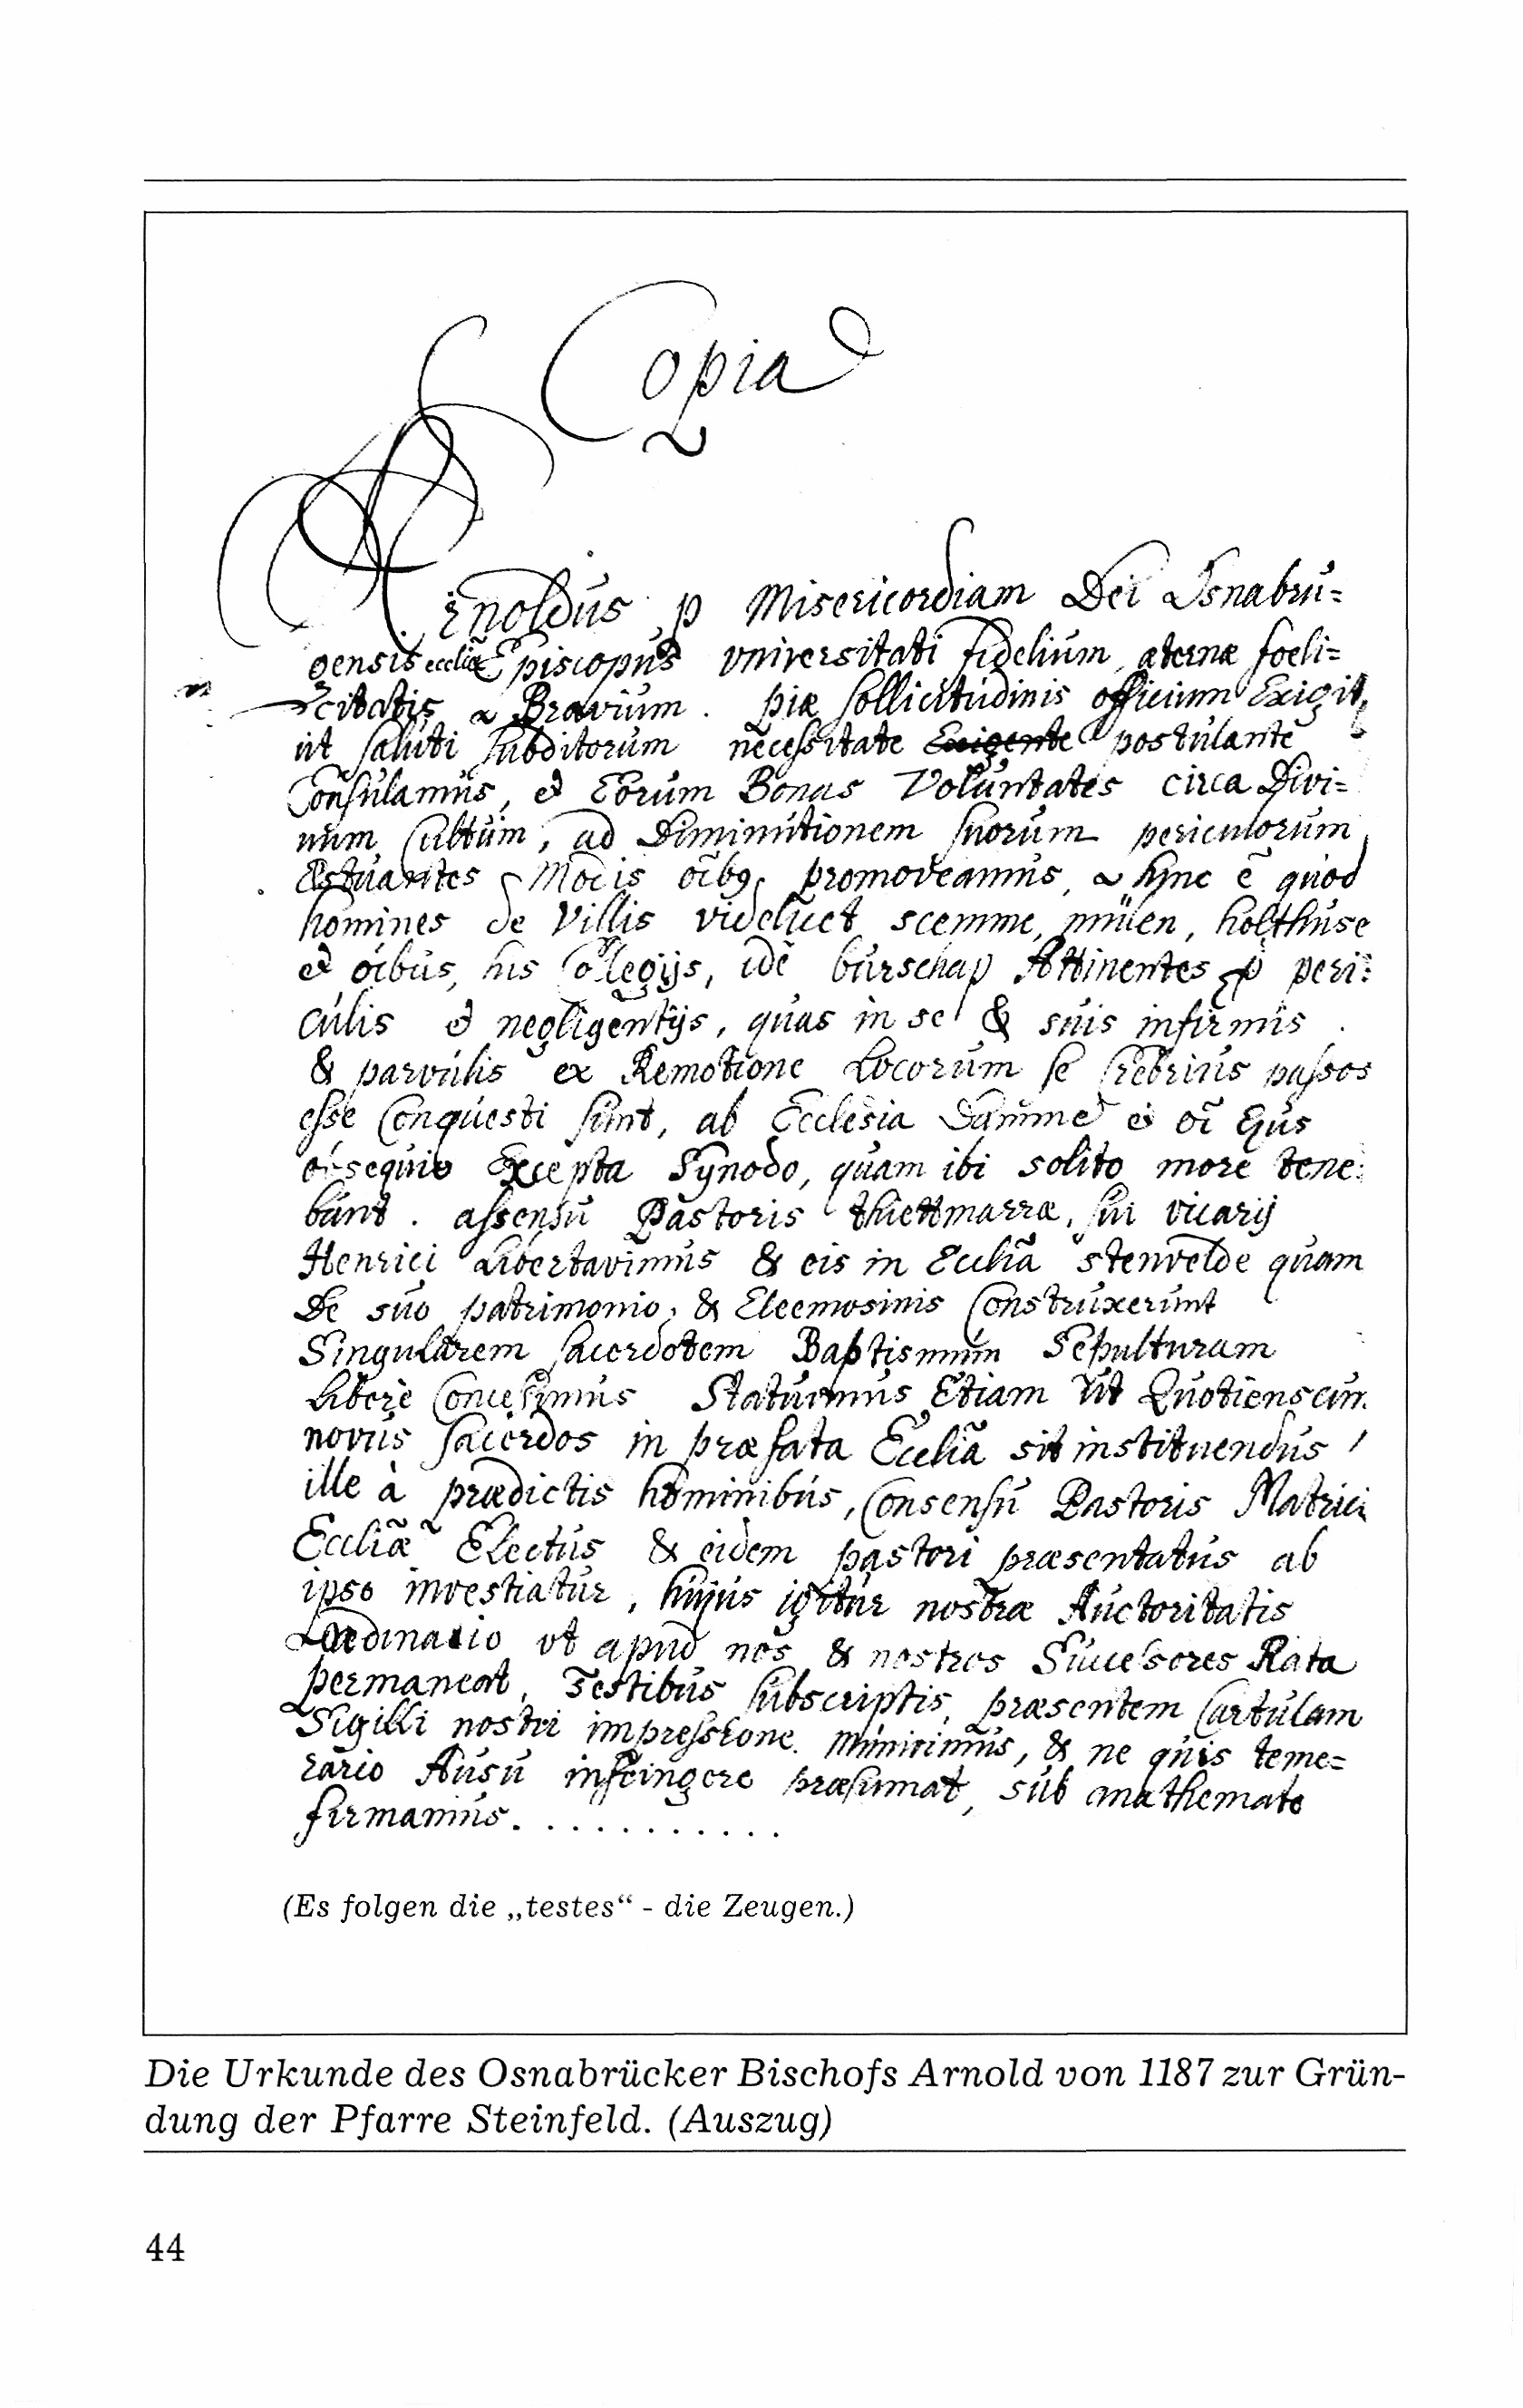 Copia
Arnoldus p Misericordiam Dei Osnabru=
gensis eccliæ Episcopus vniversitati fidelium æternæ foeli=
citatis Bravium. piæ sollicitudinis officium Exigit,
ut saluti subditorum necessitate Exigente postulante
Consulamus, et Eorum Bonas Voluntates circa Divi=
num Cultum, ad Diminutionem suorum periculorum
Æstuantes Modis oibq promoveamus, hinc ē quod
homines de Villis videlicet scemme, mülen, holthuse
et oibus, his Collegijs, idē burschap Attinentes p peri=
culis et negligentijs, quas in se & suis infirmis
& parvulis ex Remotione Locorum se Crebrius passos
esse Conquesti sunt, ab Ecclesia Damme et oī Ejus
obsequio Excepta Synodo, quam ibi solito more tene=
bunt. assensu Pastoris thiettmarræ, sui vicarij
Henrici Libertavimus & eis in Ecclīa stenvelde quam
De suo patrimonio, & Eleemosinis Construxerunt
Singularem sacerdotem Baptismum Sepulturam
Libere Concessimus Statuimus Etiam Ut Quotienscum
novus sacerdos in præfata Ecclīa sit instituendus
ille à prædictis hominibus, Consensu Pastoris Matrici
Eccliæ Electus & eidem pastori præsentatus ab
ipso investiatur, hujus igitur nostræ Auctoritatis
Ordinatio vt apud nos & nostros Successores Rata
permaneat, Testibus subscriptis, præsentem Cartulam
Sigilli nostri impressione munivimus, & ne quis teme=
rario Ausu infringere præsumat, sub anathemate
firmamus. . . . . . . . . . . .
(Es folgen die „testes“ - die Zeugen.)
Die Urkunde des Osnabrücker Bischofs Arnold von 1187 zur Grün-
dung der Pfarre Steinfeld. (Auszug)
44